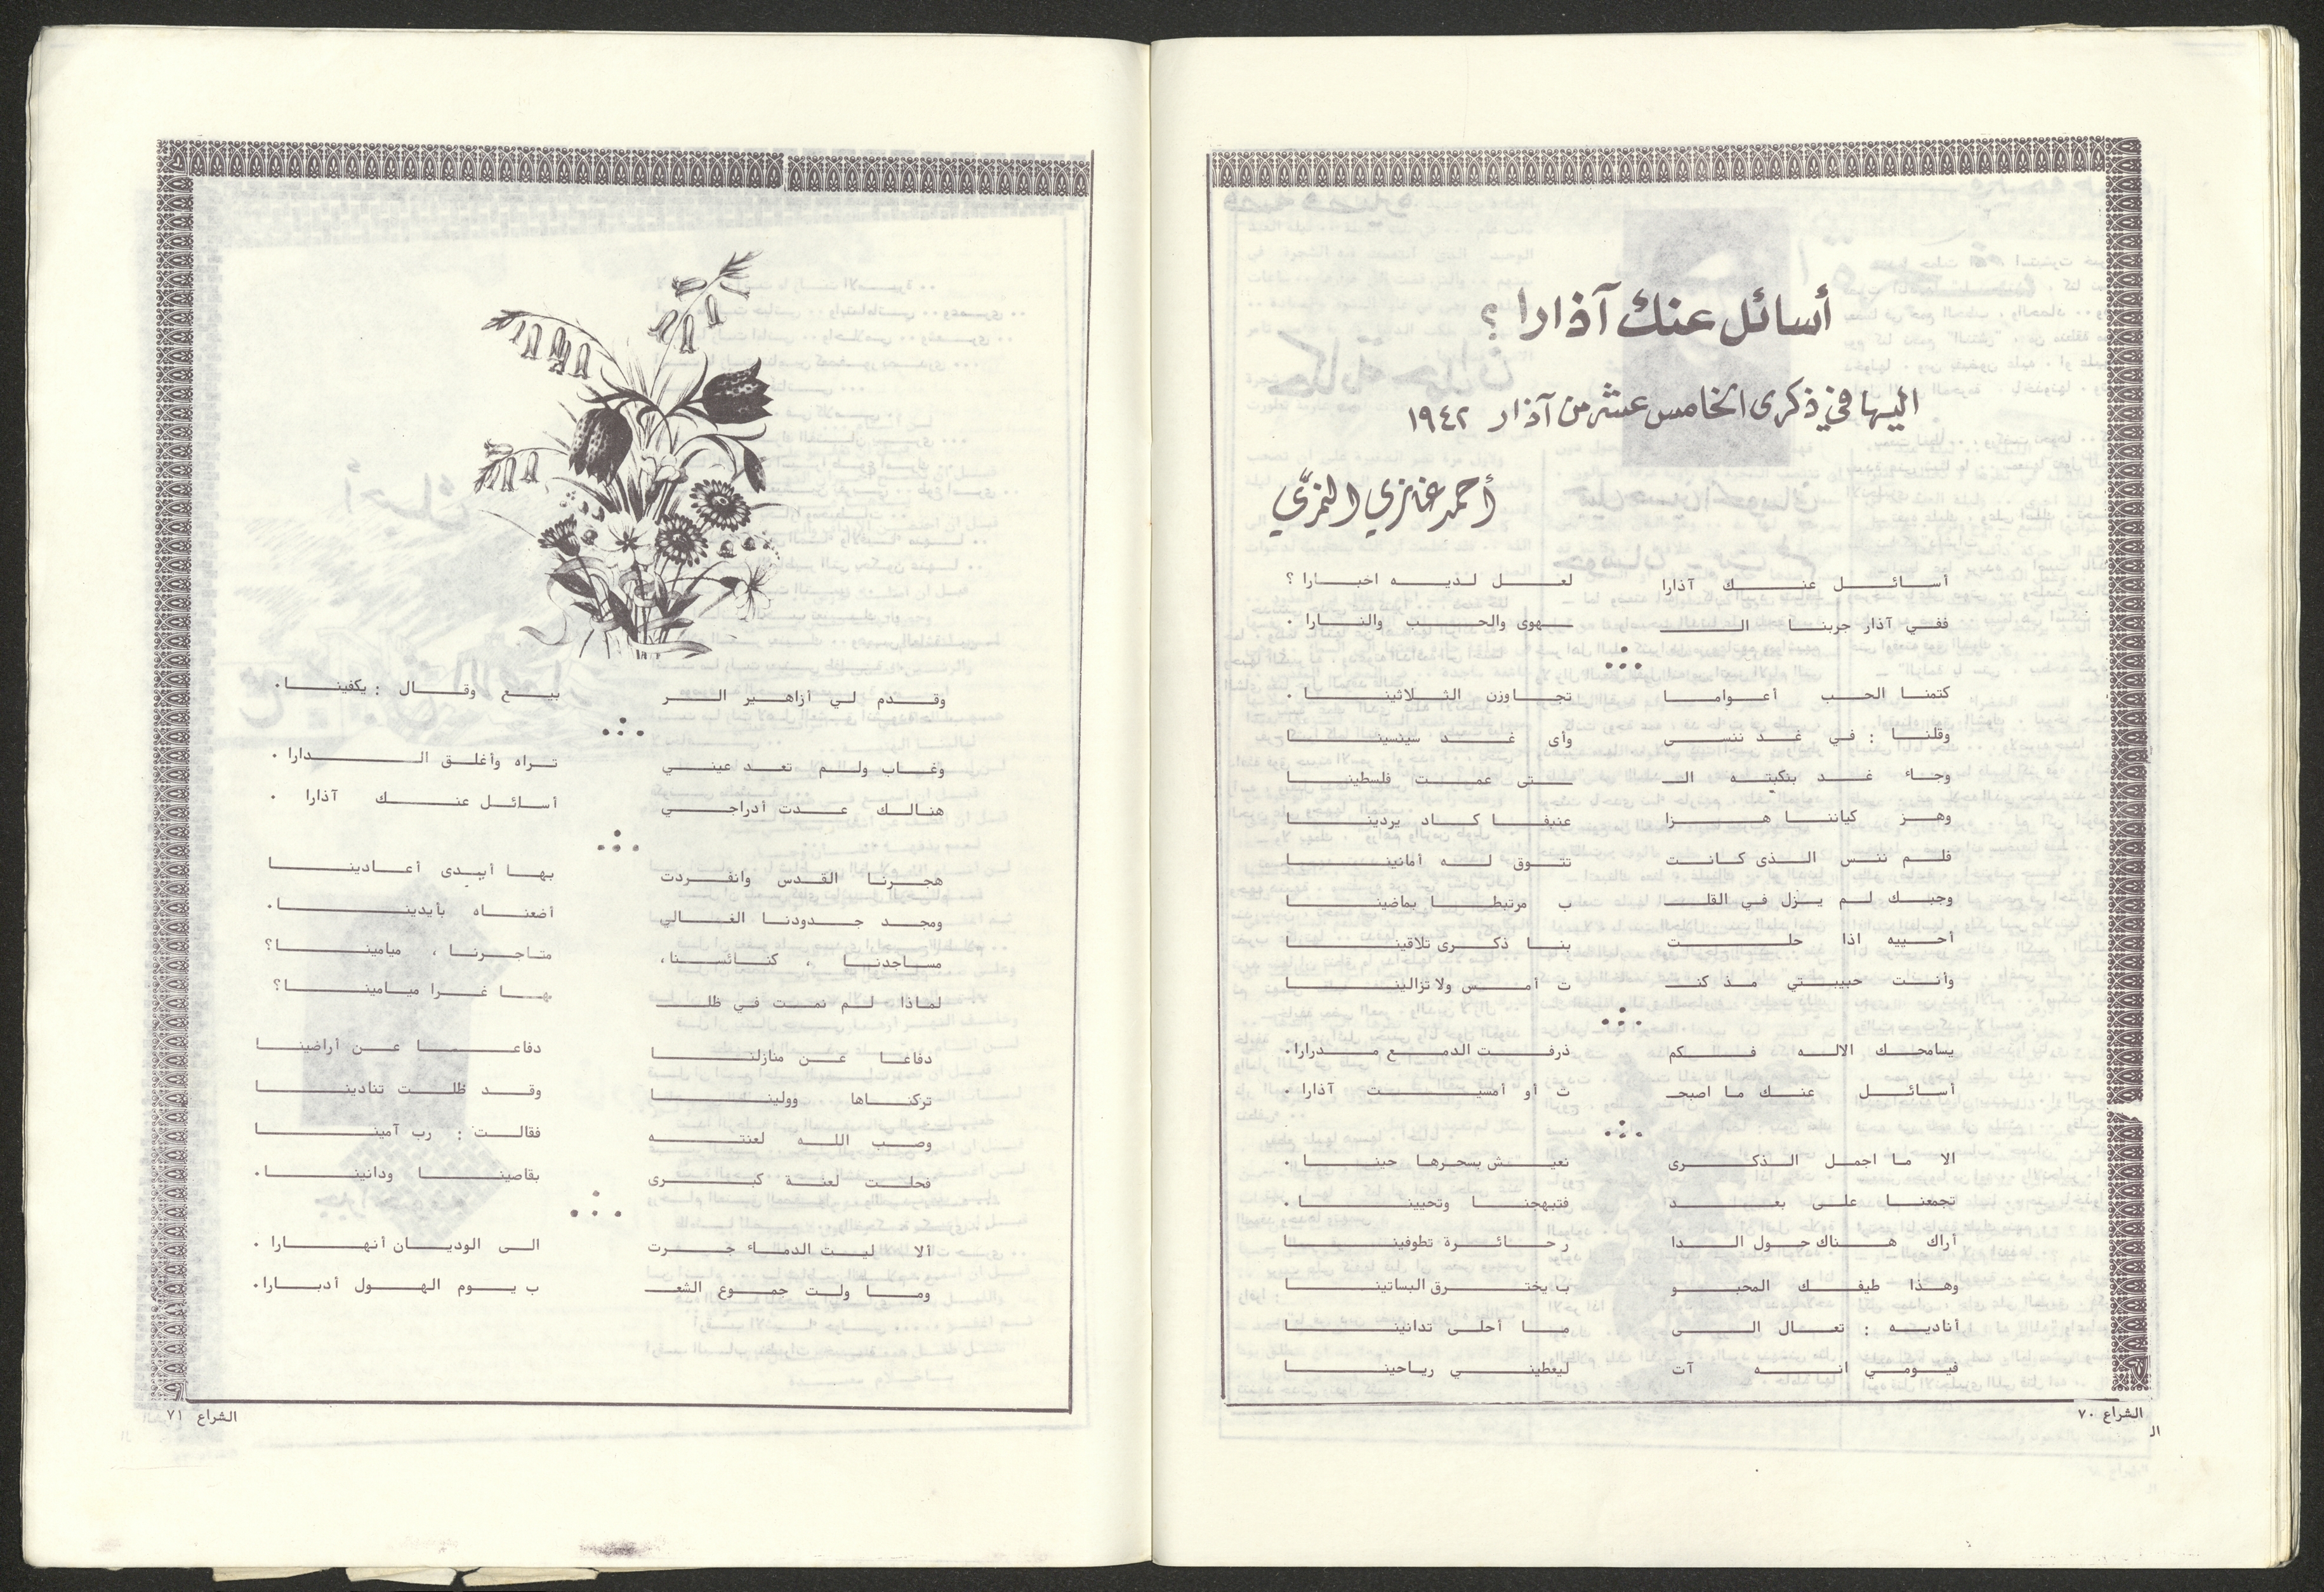 أسائل عنك آذارا ؟
اليها في ذكرى الخامس عشر من آذار ١٩٤٢
أحمد غازي النمري
أسائل عنك آذارا لعل لديه اخبارا ؟
ففي آذار جربنا الـ ـهوى والحب والنارا .
كتمنا الحب أعواما تجاوزن الثلاثينا .
وقلنا : في غد ننسى وأى غد سينسينا
وجاء غد بنكبته الـ ـتى عمت فلسطينا
وهز كياننا هزا عنيفا كاد يردينا
فلم ننس الذى كانت تتوق له أمانينا
وحبك لم يزل في القلـ ب مرتبطا بماضينا
أحييه اذا حلت بنا ذكرى تلاقينا
وأنت حبيبتي مذ كنـ ت أمس ولا تزالينا
يسامحك الاله فكم ذرفت الدمع مدرارا .
أسائل عنك ما اصبحـ ت أو أمسيت آذارا .
الا ما اجمل الذكرى نعيش بسحرها حينا .
تجمعنا على بعد فتبهجنا وتحيينا .
أراك هناك حول الدا ر حائرة تطوفينا
وهذا طيفك المحبو ب يخترق البساتينا
أناديه : تعال الى ما أحلى تدانينا
فيومي انه آت ليعطيني رياحينا
الشراع ٧٠
الـ
وقدم لي أزاهير الر بيع وقال : يكفينا .
وغاب ولم تعد عيني تراه وأغلق الدارا .
هنالك عدت أدراجي أسائل عنك آذارا .
هجرنا القدس وانفردت بها أيدى أعادينا
ومجد جدودنا الغالي أضعناه بأيدينا .
مساجدنا ، كنائسنا ، متاجرنا ، ميامينا ؟
لماذا لم نمت في ظلـ ـها غرا ميامينا ؟
دفاعا عن منازلنا دفاعا عن أراضينا
تركناها وولينا وقد ظلت تنادينا
وصب الله لعنته فقالت : رب آمينا
فحلت لعنة كبرى بقاصينا ودانينا .
ألا ليت الدماء جرت الى الوديان أنهارا .
وما ولت جموع الشعـ ب يوم الهول أدبارا .
الشراع ٧١